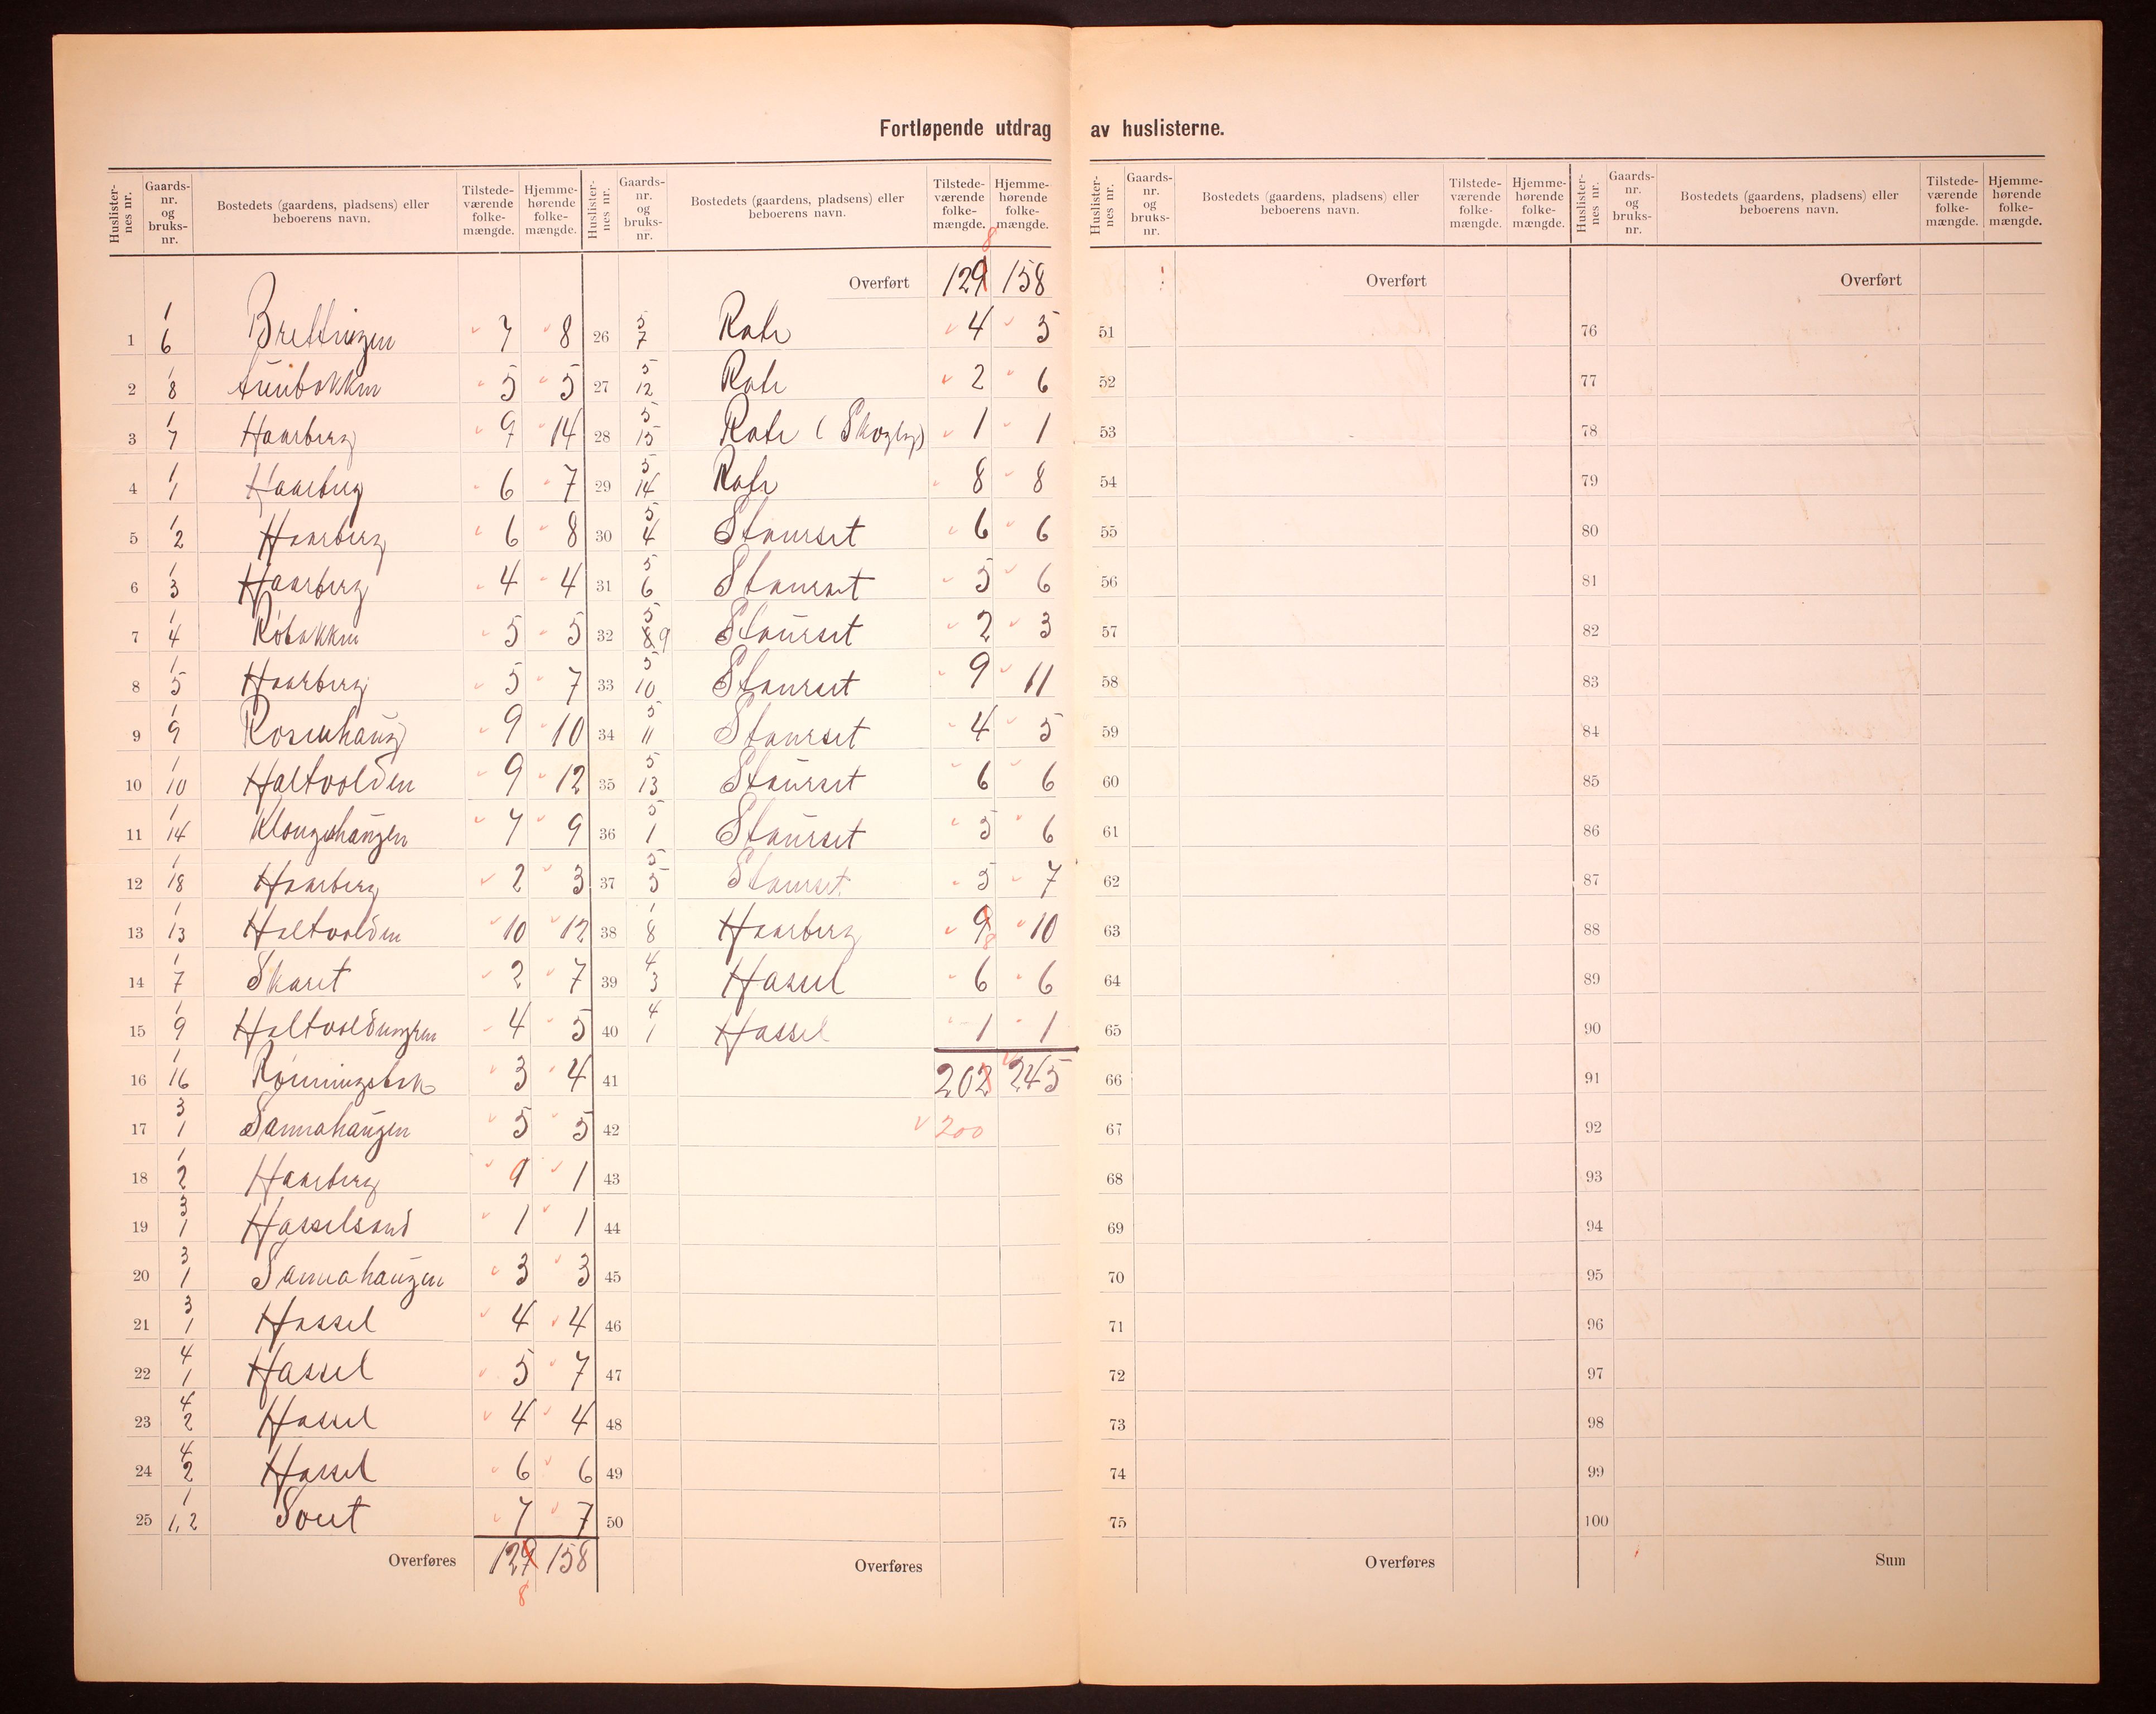 Fortløpende utdrag av huslisterne.
Huslister-nes nr. Gaards-nr. og bruks-nr. Bostedets (gaardens, pladsens) eller beboerens navn. Tilstede-værende folke-mængde. Hjemme-hørende folke-mængde.
1 1/6 Brettingen 7 8
2 1/8 7 5 5
3 1/7 Haarberg 9 14
4 1/1 Haarberg 6 7
5 1/2 Haarberg 6 8
6 1/3 Haarberg 4 4
7 1/4 Røbakken 5 5
8 1/5 Haarberg 5 7
9 1/9 Rosenhaug 9 10
10 1/10 Haltvolden 9 12
11 1/14 Klongshaugen 7 9
12 1/18 Haarberg 2 3
13 1/13 Haltvolden 10 12
14 1/7 Skaret 2 7
15 1/9 4 5
16 1/16 Rønningsbak 3 4
17 3/1 Sannahaugen 5 5
18 1/2 Haarberg 1
19 3/1 Hasselsand 1 1
20 3/1 Sannahaugen 3 3
21 3/1 Hassel 4 4
22 4/1 Hassel 5 7
23 4/2 Hassel 4 4
24 4/2 Hassel 6 6
25 1/1,2 7 7
Overføres 129 158
8
Huslister-nes nr. Gaards-nr. og bruks-nr. Bostedets (gaardens, pladsens) eller beboerens navn. Tilstede-værende folke-mængde. Hjemme-hørende folke-mængde.
8
Overført 129 158
26 5/7 Rate 4 5
27 5/12 Rate 2 6
28 5/15 Rate (Skogly) 1 1
29 5/14 Rate 8 8
30 5/4 Staurset 6 6
31 5/6 Staurset 5 6
32 5/8 9 Staurset 2 3
33 5/10 Staurset 9 11
34 5/11 Staurset 4 5
35 5/13 Staurset 6 6
36 5/1 Staurset 5 6
37 5/5 Staurset 5 7
38 1/8 Haarberg 9 8 10
39 4/3 Hassel 6 6
40 4/1 Hassel 1 1
41 202 245
42 200
43
44
45
46
47
48
49
50
Overføres
Huslister-nes nr. Gaards-nr. og bruks-nr. Bostedets (gaardens, pladsens) eller beboerens navn. Tilstede-værende folke-mængde. Hjemme-hørende folke-mængde.
Overført
51
52
53
54
55
56
57
58
59
60
61
62
63
64
65
66
67
68
69
70
71
72
73
74
75
Overføres
Huslister-nes nr. Gaards-nr. og bruks-nr. Bostedets (gaardens, pladsens) eller beboerens navn. Tilstede-værende folke-mængde. Hjemme-hørende folke-mængde.
Overført
76
77
78
79
80
81
82
83
84
85
86
87
88
89
90
91
92
93
94
95
96
97
98
99
100
Sum